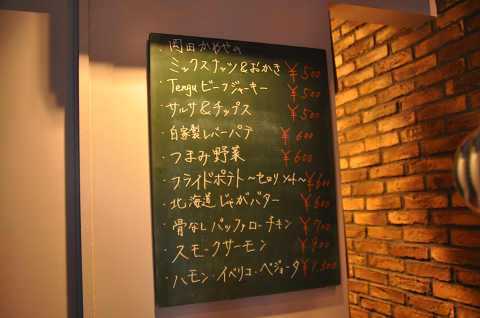 ・岡田かめやの
ミックスナッツ&おかき ¥500
・Tengu ビーフジャーキー ¥500
・サルサ&チップス ¥500
・自家製レバーパテ ¥600
・つまみ野菜 ¥600
・フライドポテト〜セロリソルト〜 ¥600
・北海道じゃがバター ¥600
・骨なしバッファローチキン ¥700
・スモークサーモン ¥900
・ハモン・イベリコ・ベジョータ ¥1,300